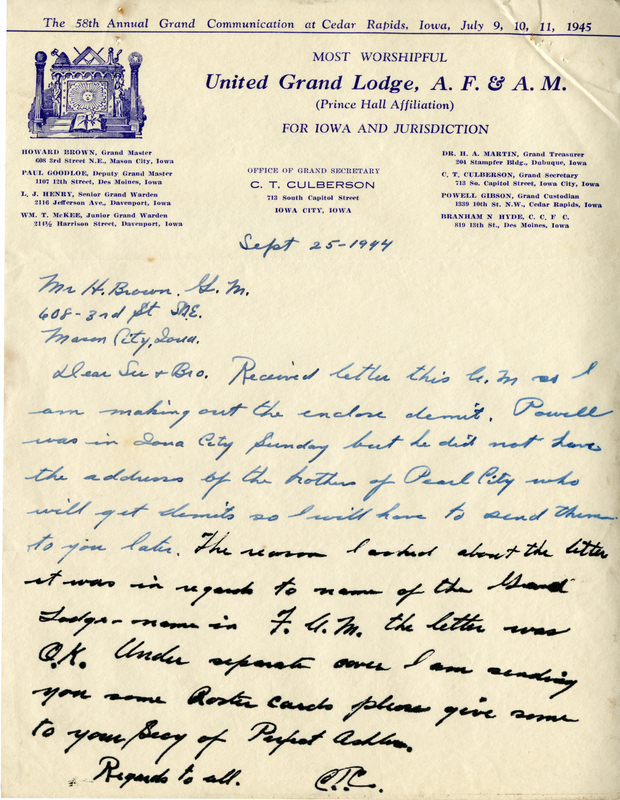 The 58th Annual Grand Communication at Cedar Rapids, Iowa, July 9, 10, 11, 1945
MOST WORSHIPFUL
United Grand Lodge, A. F. & A. M.
(Prince Hall Affiliation)
FOR IOWA AND JURISDICTION
HOWARD BROWN, Grand Master
608 3rd Street N.E., Mason City, Iowa
PAUL GOODLOE, Deputy Grand Master
1107 12th Street, Des Moines, Iowa
L. J. HENRY, Senior Grand Warden
2116 Jefferson Ave., Davenport, Iowa
WM. T. McKEE, Junior Grand Warden
214½ Harrison Street, Davenport, Iowa
OFFICE OF GRAND SECRETARY
C. T. CULBERSON
713 South Capitol Street
IOWA CITY, IOWA
DR. H. A. MARTIN, Grand Treasurer
204 Stampfer Bldg., Dubuque, Iowa
C. T. CULBERSON, Grand Secretary
713 So. Capitol Street, Iowa City, Iowa
POWELL GIBSON, Grand Custodian
1339 10th St. N.W., Cedar Rapids, Iowa
BRANHAM N HYDE, C. C. F. C.
819 13th St., Des Moines, Iowa
Sept 25-1944
Mr H. Brown. G. M.
608-3rd St N.E.
Mason City, Iowa.
Dear Sir + Bro. Received letter this A.M so I
am making out the enclose demit. Powell
was in Iowa City Sunday but he did not have
the address of the brothers of Pearl City who
will get demits so I will have to send them
to you later. The reason I asked about the letter
it was in regards to name of the Grand
Lodge - name in F. A. M. the letter was
O.K. Under separate cover I am sending
you some Roster cards please give some
to your Secy of Perfect Ashler.
Regards to all. C.T.C.